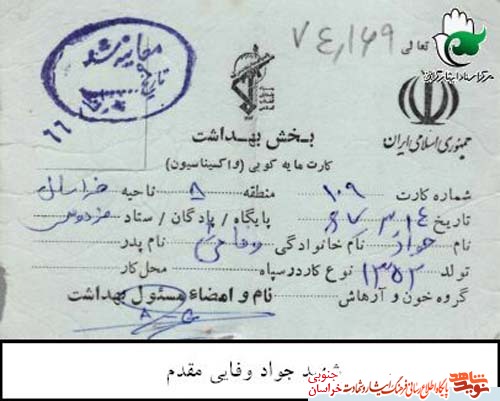 تعالی
۷۴,۱۶۹
معاینه شد
تاریخ
مرکز اسناد ایثارگران
جمهوری اسلامی ایران
بخش بهداشت
کارت مایه کوبی (واکسیناسیون)
شماره کارت ۱۰۹ منطقه ۵ ناحیه خراسان
تاریخ ۶۷/۳/۱۴ پایگاه / پادگان / ستاد فردوس
نام جواد نام خانوادگی وفایی نام پدر
تولد ۱۳۵۲ نوع کادر سپاه محل کار
گروه خون و آرهاش نام و امضاء مسئول بهداشت
شهید جواد وفایی مقدم
نوید شاهد
پایگاه اطلاع رسانی فرهنگ ایثار و شهادت
خراسان جنوبی